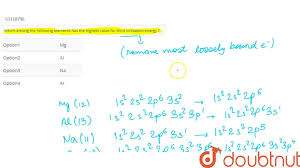 63118796
which among the following elements has the highest value for third ionisation energy ?
Option1 Mg
Option2 Al
Option3 Na
Option4 Ar
(remove most loosely bound e⁻)
Mg (12) 1s² 2s² 2p⁶ 3s² → 1s² 2s² 2p⁶
Al (13) 1s² 2s² 2p⁶ 3s² 3p¹ → 1s² 2s² 2p⁶ 3s¹
Na (11) 1s² 2s² 2p⁶ 3s¹ → 1s² 2s² 2p⁵
1s² 2s² 2p⁶ 3s² 3p⁶
doubtnut